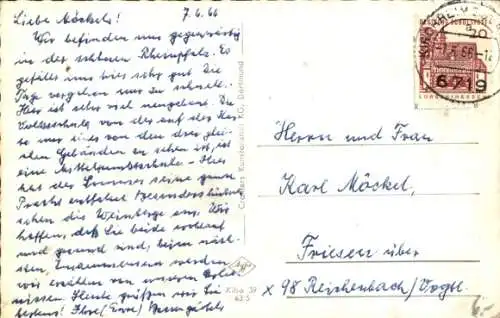 Liebe Möckels! 7.6.66
Wir befinden uns gegenwärtig
in der schönen Rheinpfalz. Es
gefällt uns hier sehr gut. Die
Tage vergehen nur zu schnelle.
Hier ist aber viel neugebaut. Die
Volksschule, von der auf der Kar-
te nur eines von den drei glei-
chen Gebäuden zu sehen ist, ist
eine Mittelpunktschule. - Hier
hat der Sommer seine ganze
Pracht entfaltet. Besonders hübsch
sehen die Weinberge aus. Wir
hoffen, daß Sie beide wohlauf
und gesund sind, beim näch-
sten Zusammensein werden
wir erzählen von unseren Erleb-
nissen. Heute grüßen wir Sie
bestens! Flore (Erna)
Cramers Kunstanstalt KG, Dortmund
Kibo 39
63 5
DEUTSCHE BUNDESPOST
20
LORSCH/HESSEN
66-12
6719
Herrn und Frau
Karl Möckel,
Friesen über
x 98 Reichenbach/Vogtl.